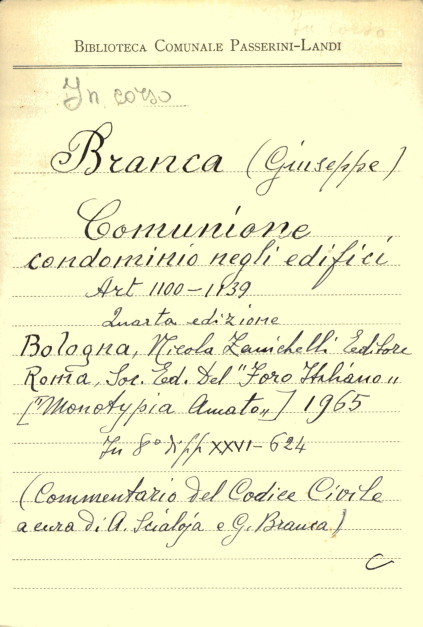 In corso
BIBLIOTECA COMUNALE PASSERINI-LANDI
In corso
Branca (Giuseppe)
Comunione
condominio negli edifici
Art 1100-1139
Quarta edizione
Bologna, Nicola Zanichelli Editore
Roma, Soc. Ed. Del "Foro Italiano"
["Monotypia Amato"] 1965
In 8° di pp XXVI-624
(Commentario del Codice Civile
a cura di A. Scialoja e G. Branca)
C